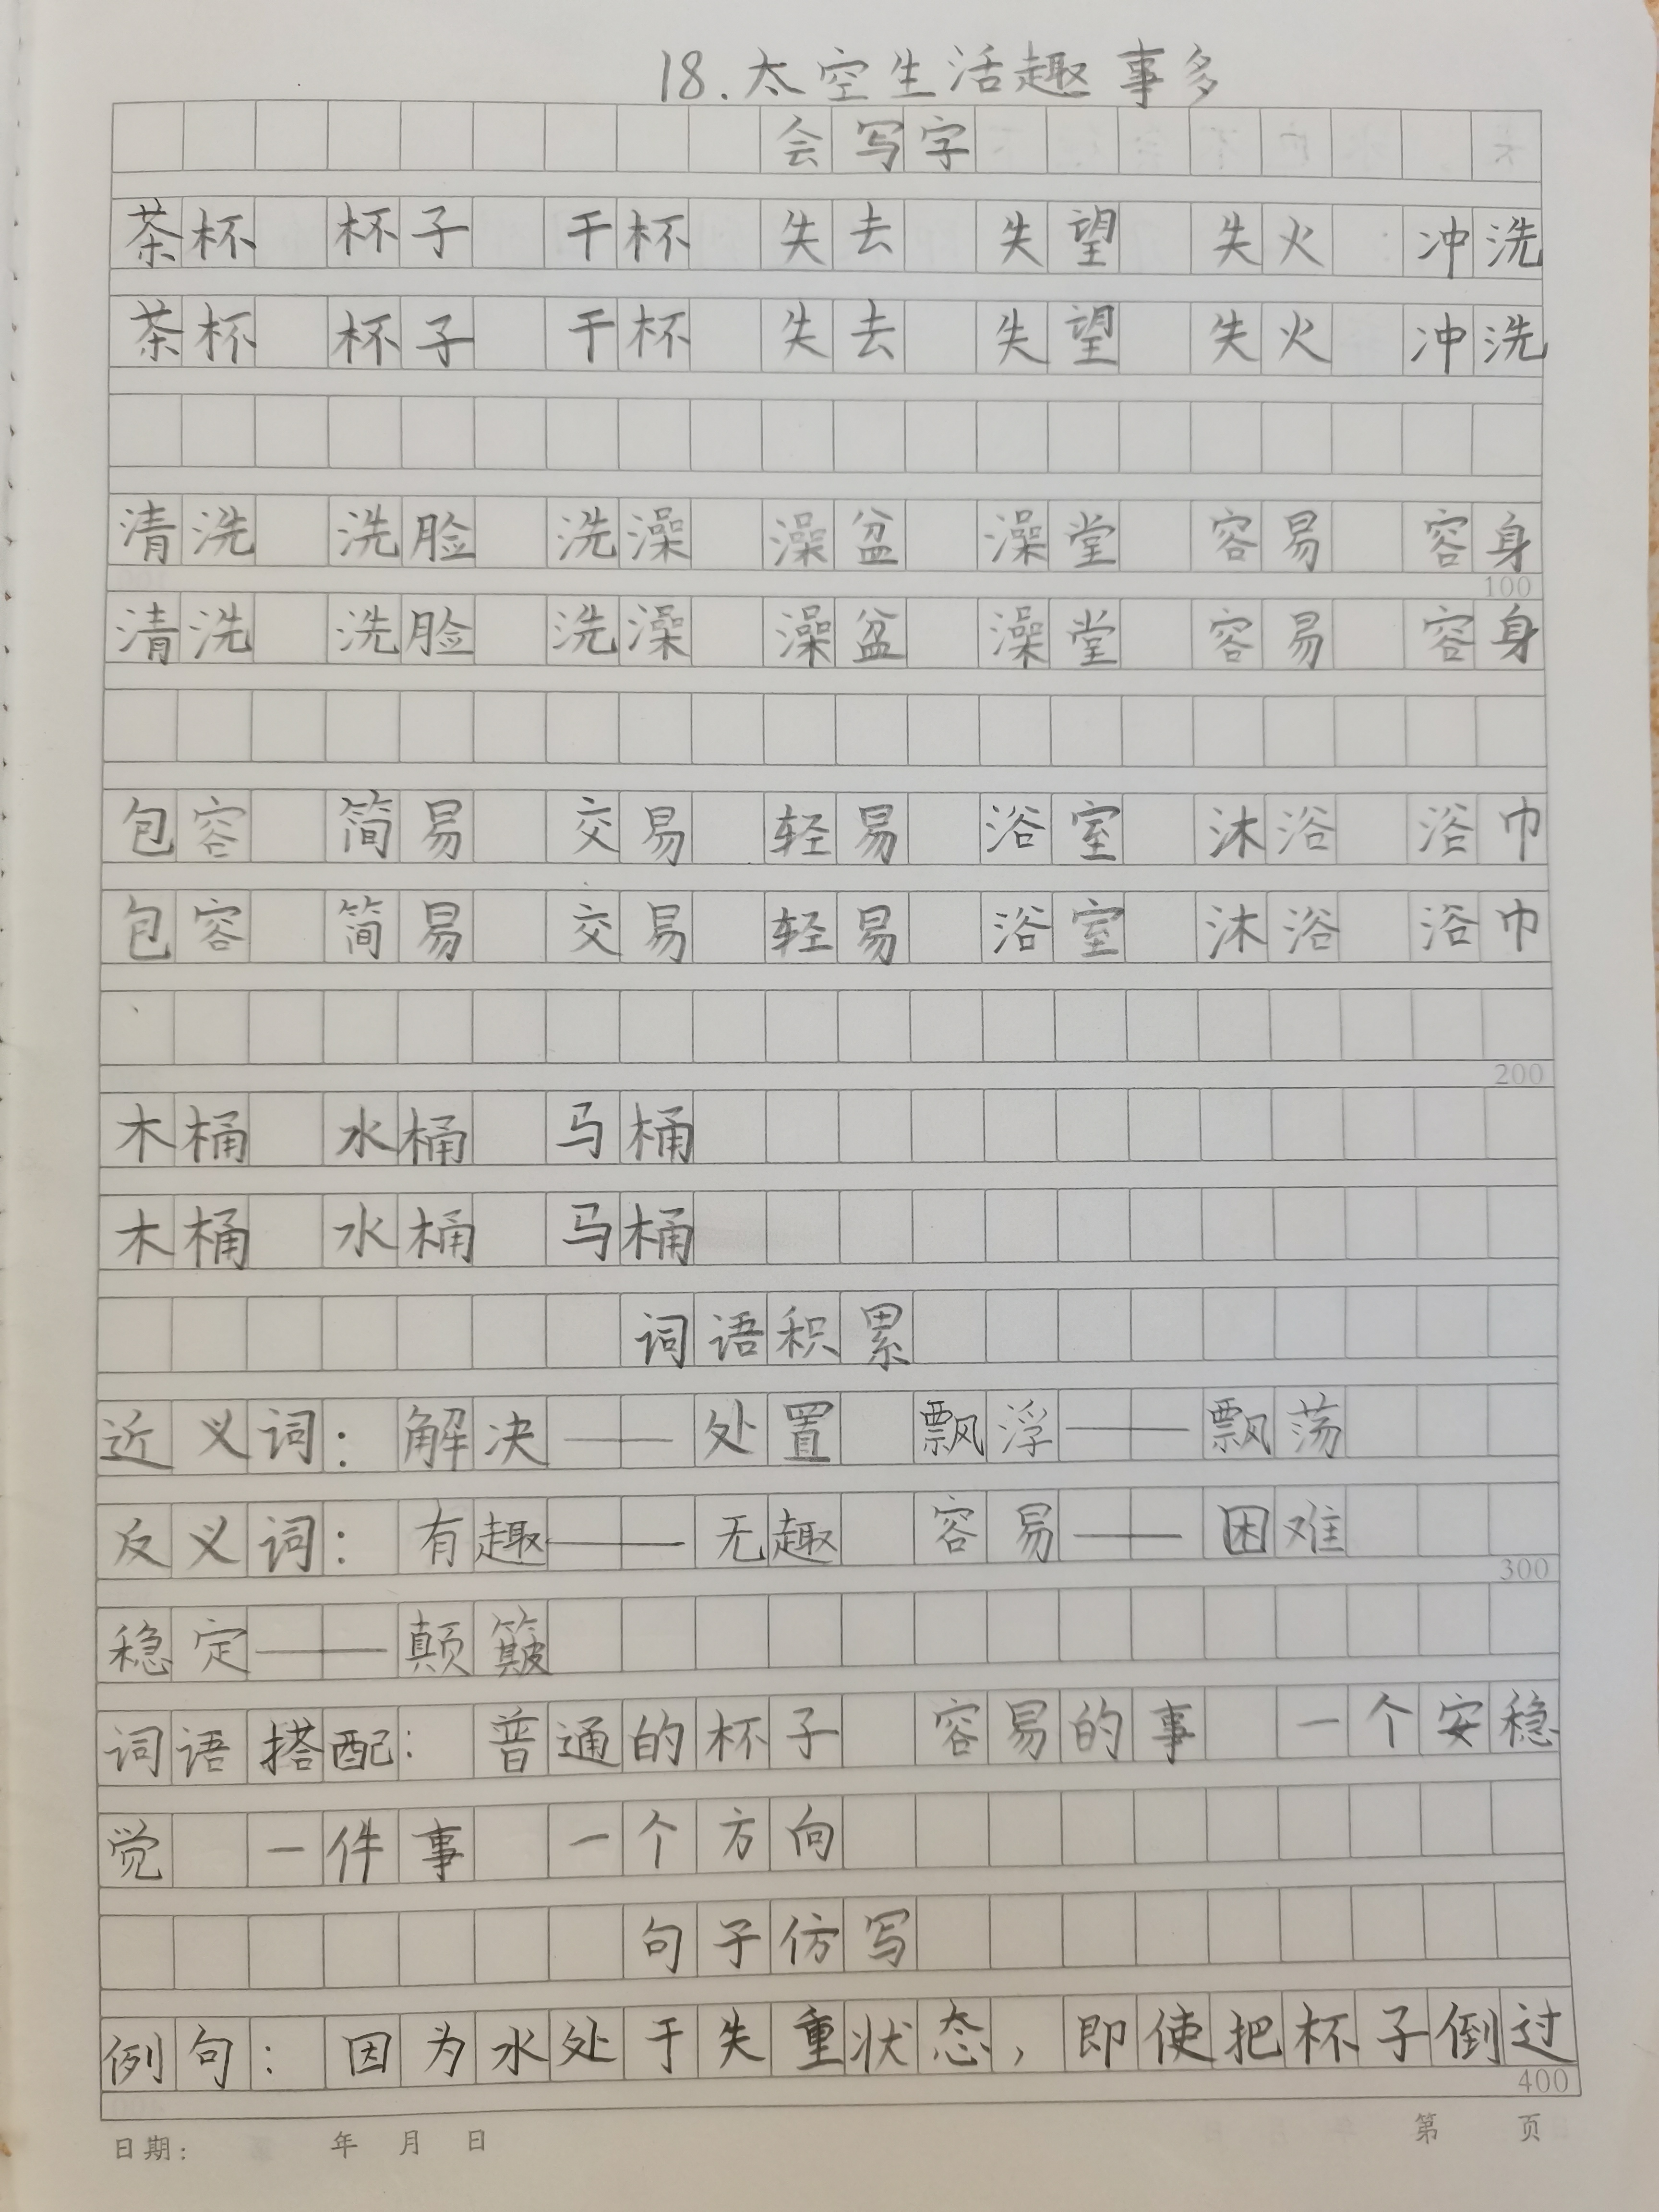 18.太空生活趣事多
会写字
茶杯 杯子 干杯 失去 失望 失火 冲洗
茶杯 杯子 干杯 失去 失望 失火 冲洗
清洗 洗脸 洗澡 澡盆 澡堂 容易 容身
100
清洗 洗脸 洗澡 澡盆 澡堂 容易 容身
包容 简易 交易 轻易 浴室 沐浴 浴巾
包容 简易 交易 轻易 浴室 沐浴 浴巾
200
木桶 水桶 马桶
木桶 水桶 马桶
词语积累
近义词：解决——处置 飘浮——飘荡
反义词：有趣——无趣 容易——困难
300
稳定——颠簸
词语搭配：普通的杯子 容易的事 一个安稳
觉 一件事 一个方向
句子仿写
例句：因为水处于失重状态，即使把杯子倒过
400
日期： 年 月 日 第 页